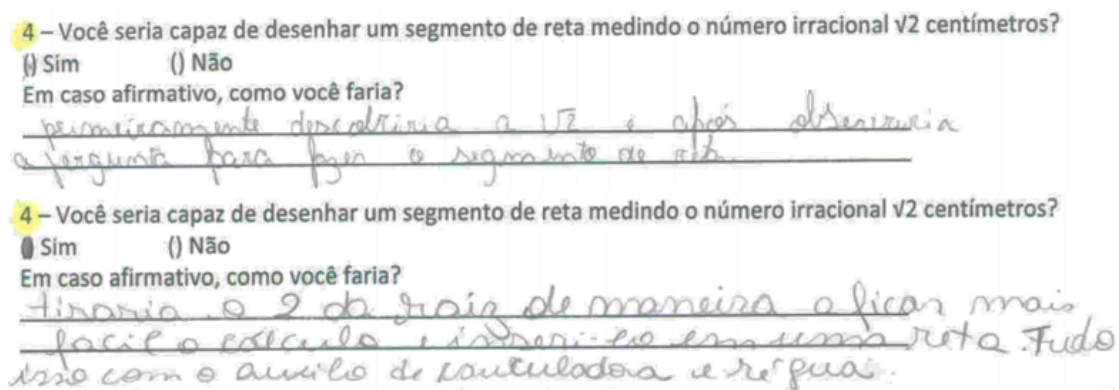 4 – Você seria capaz de desenhar um segmento de reta medindo o número irracional √2 centímetros?
() Sim () Não
Em caso afirmativo, como você faria?
primeiramente descobriria a √2 e após observaria
a pergunta para fazer o segmento de reta
4 – Você seria capaz de desenhar um segmento de reta medindo o número irracional √2 centímetros?
() Sim () Não
Em caso afirmativo, como você faria?
tiraria o 2 da raiz de maneira a ficar mais
facil o calculo e inseri-lo em uma reta. Tudo
isso com o auxilo de cauculadora e régua.